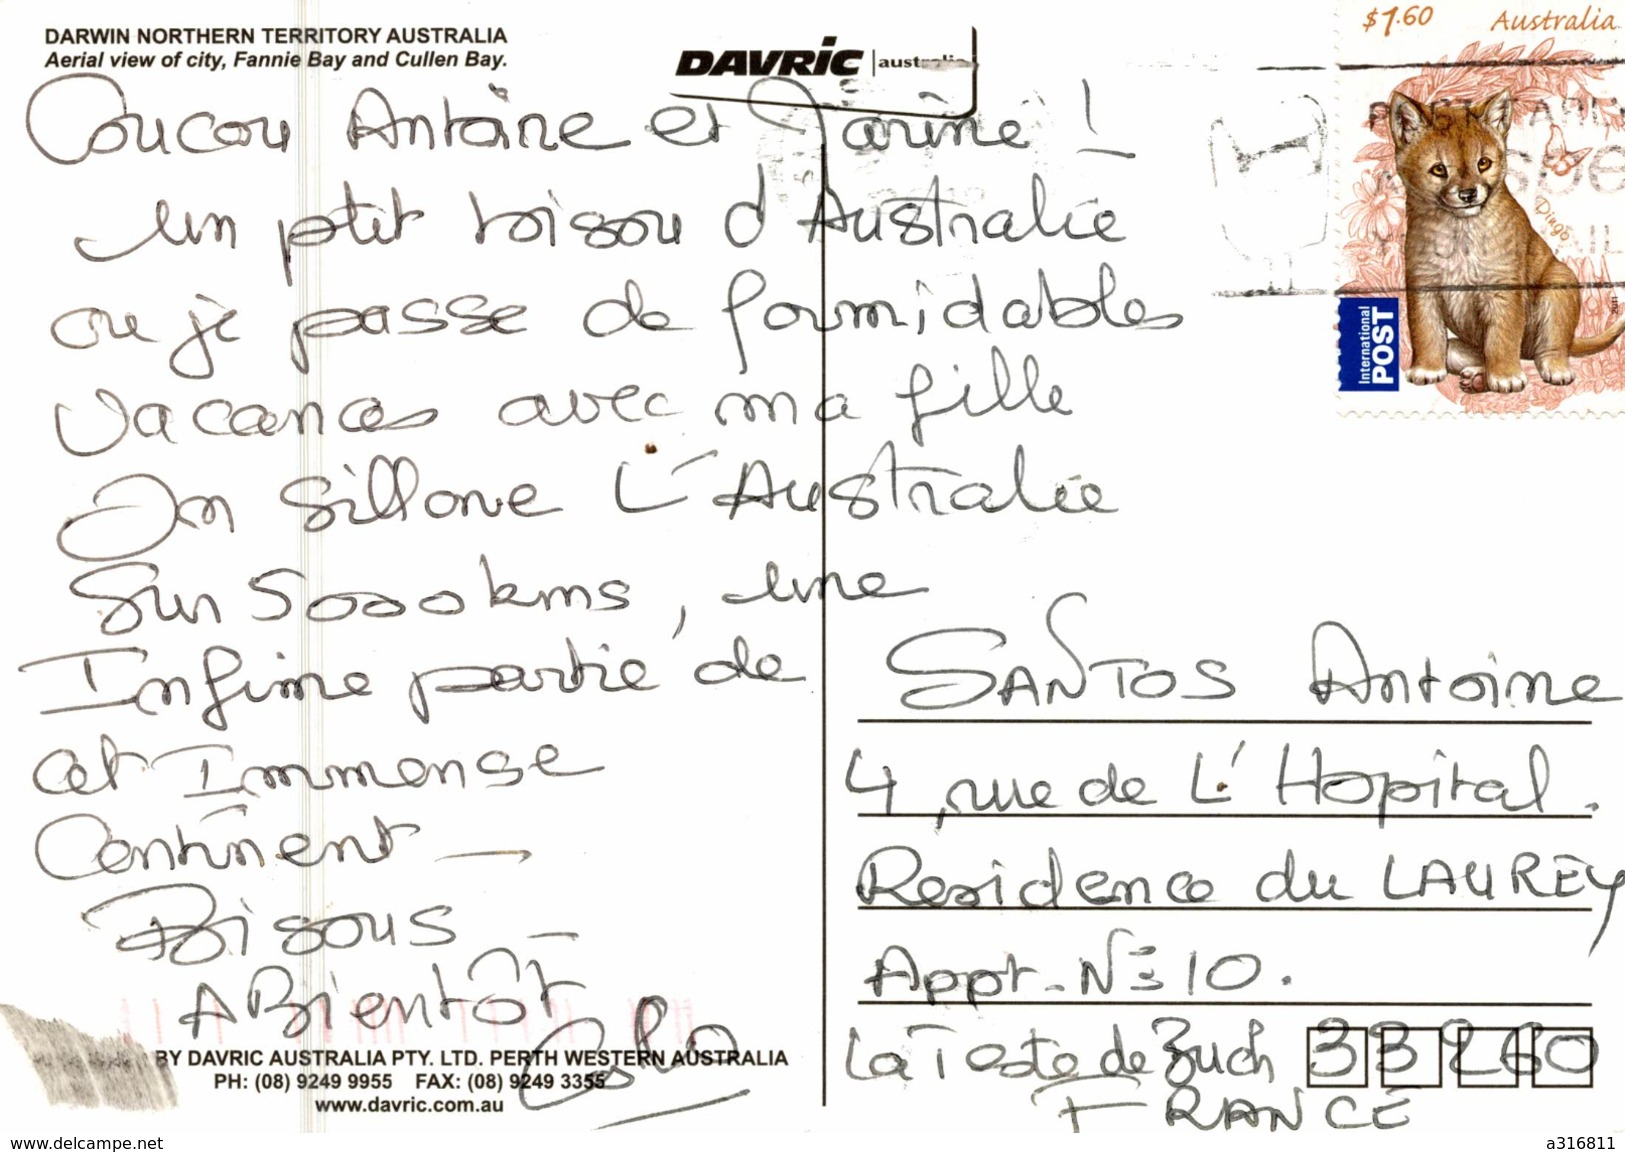 DARWIN NORTHERN TERRITORY AUSTRALIA
Aerial view of city, Fannie Bay and Cullen Bay.
DAVRIC australia
Coucou Antoine et Marine !
un ptit bisou d'Australie
ou je passe de formidables
vacances avec ma fille
On sillone L'Australie
Sur 5000 kms, une
Infime partie de
cet Immense
Continent —
Bisous —
A Bientôt
BY DAVRIC AUSTRALIA PTY. LTD. PERTH WESTERN AUSTRALIA
PH: (08) 9249 9955 FAX: (08) 9249 3355
www.davric.com.au
$1.60 Australia
Dingo
2011
International
POST
SANTOS Antoine
4, rue de L'Hopital.
Residence du LAUREY
Appt - N° 10.
La Teste de Buch 33260
FRANCE
www.delcampe.net
a316811